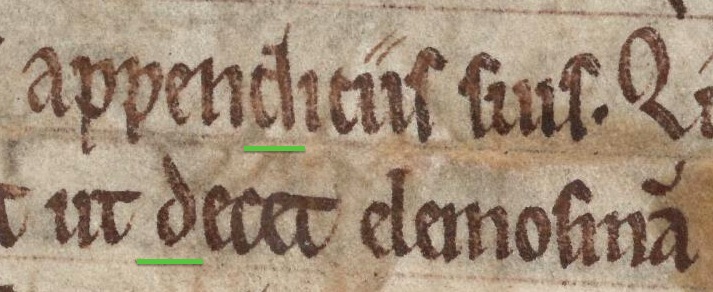 appendiciis suis. Qi
t ut decet elemosinā